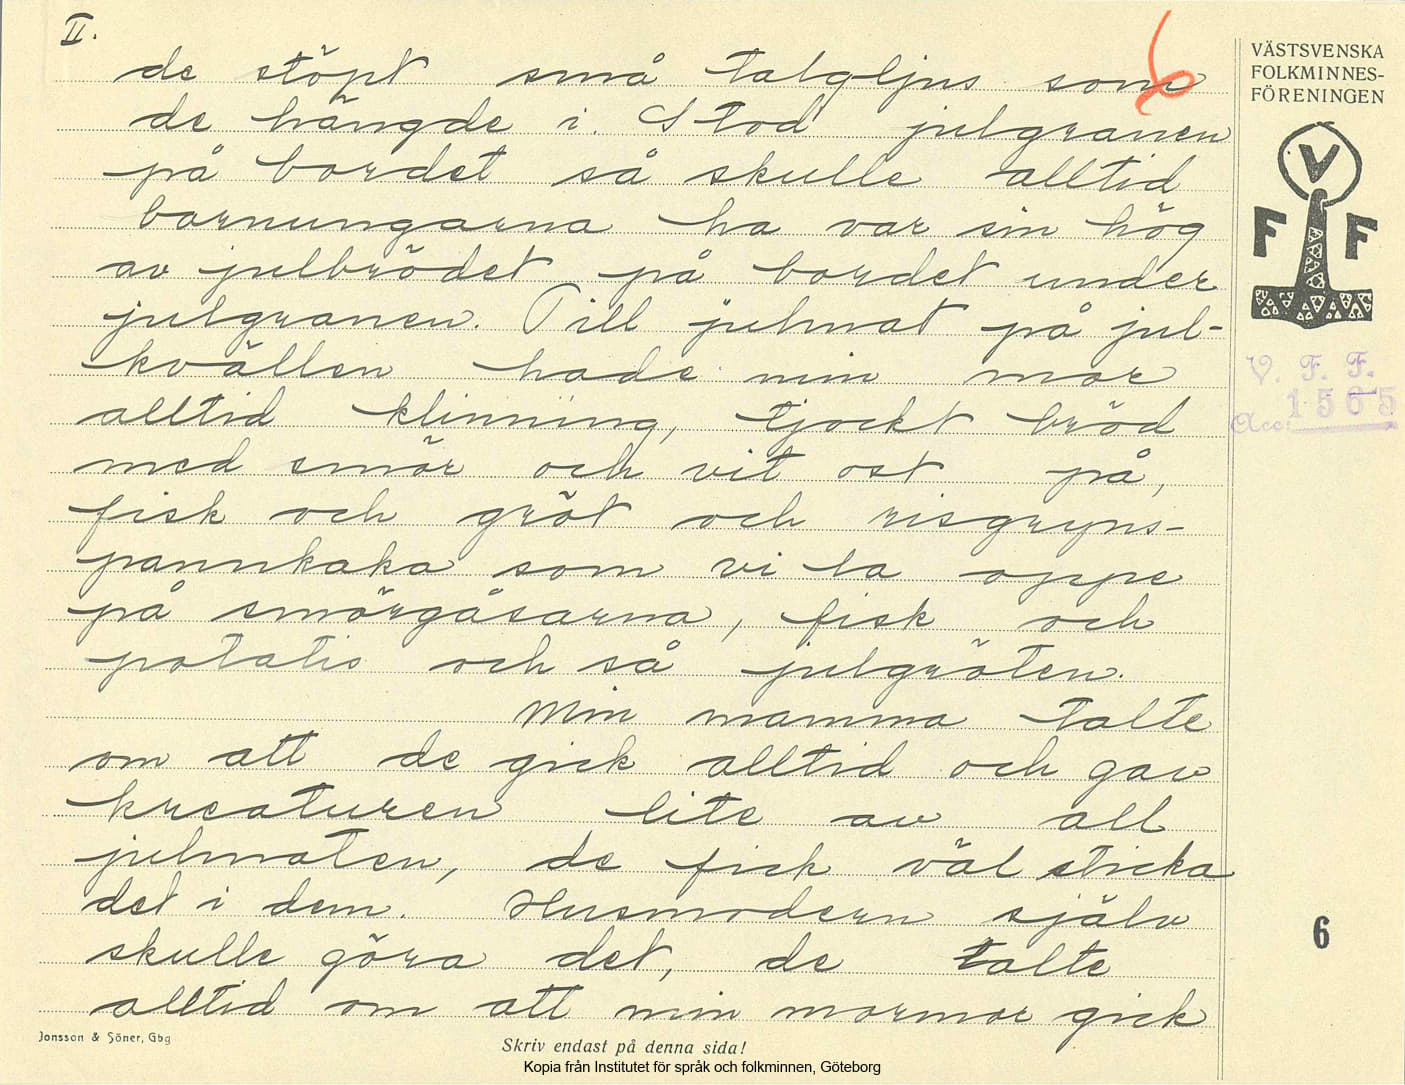 II.
6
de stöpt små talgljus som
de hängde i. Stod julgranen
på bordet så skulle alltid
barnungarna ha var sin hög
av julbrödet på bordet under
julgranen. Till julmat på jul-
kvällen hade min mor
alltid klinning, tjockt bröd
med smör och vit ost på,
fisk och gröt och risgryns-
pannkaka som vi la oppe
på smörgåsarna, fisk och
potatis och så julgröten.
Min mamma talte
om att de gick alltid och gav
kreaturen lite av all
julmaten, de fick väl sticka
det i dem. Husmodern själv
skulle göra det, de talte
alltid om att min mormor gick
VÄSTSVENSKA
FOLKMINNES-
FÖRENINGEN
V
F F
V. F. F.
Acc. 1565
6
Jonsson & Söner, Gbg
Skriv endast på denna sida!
Kopia från Institutet för språk och folkminnen, Göteborg